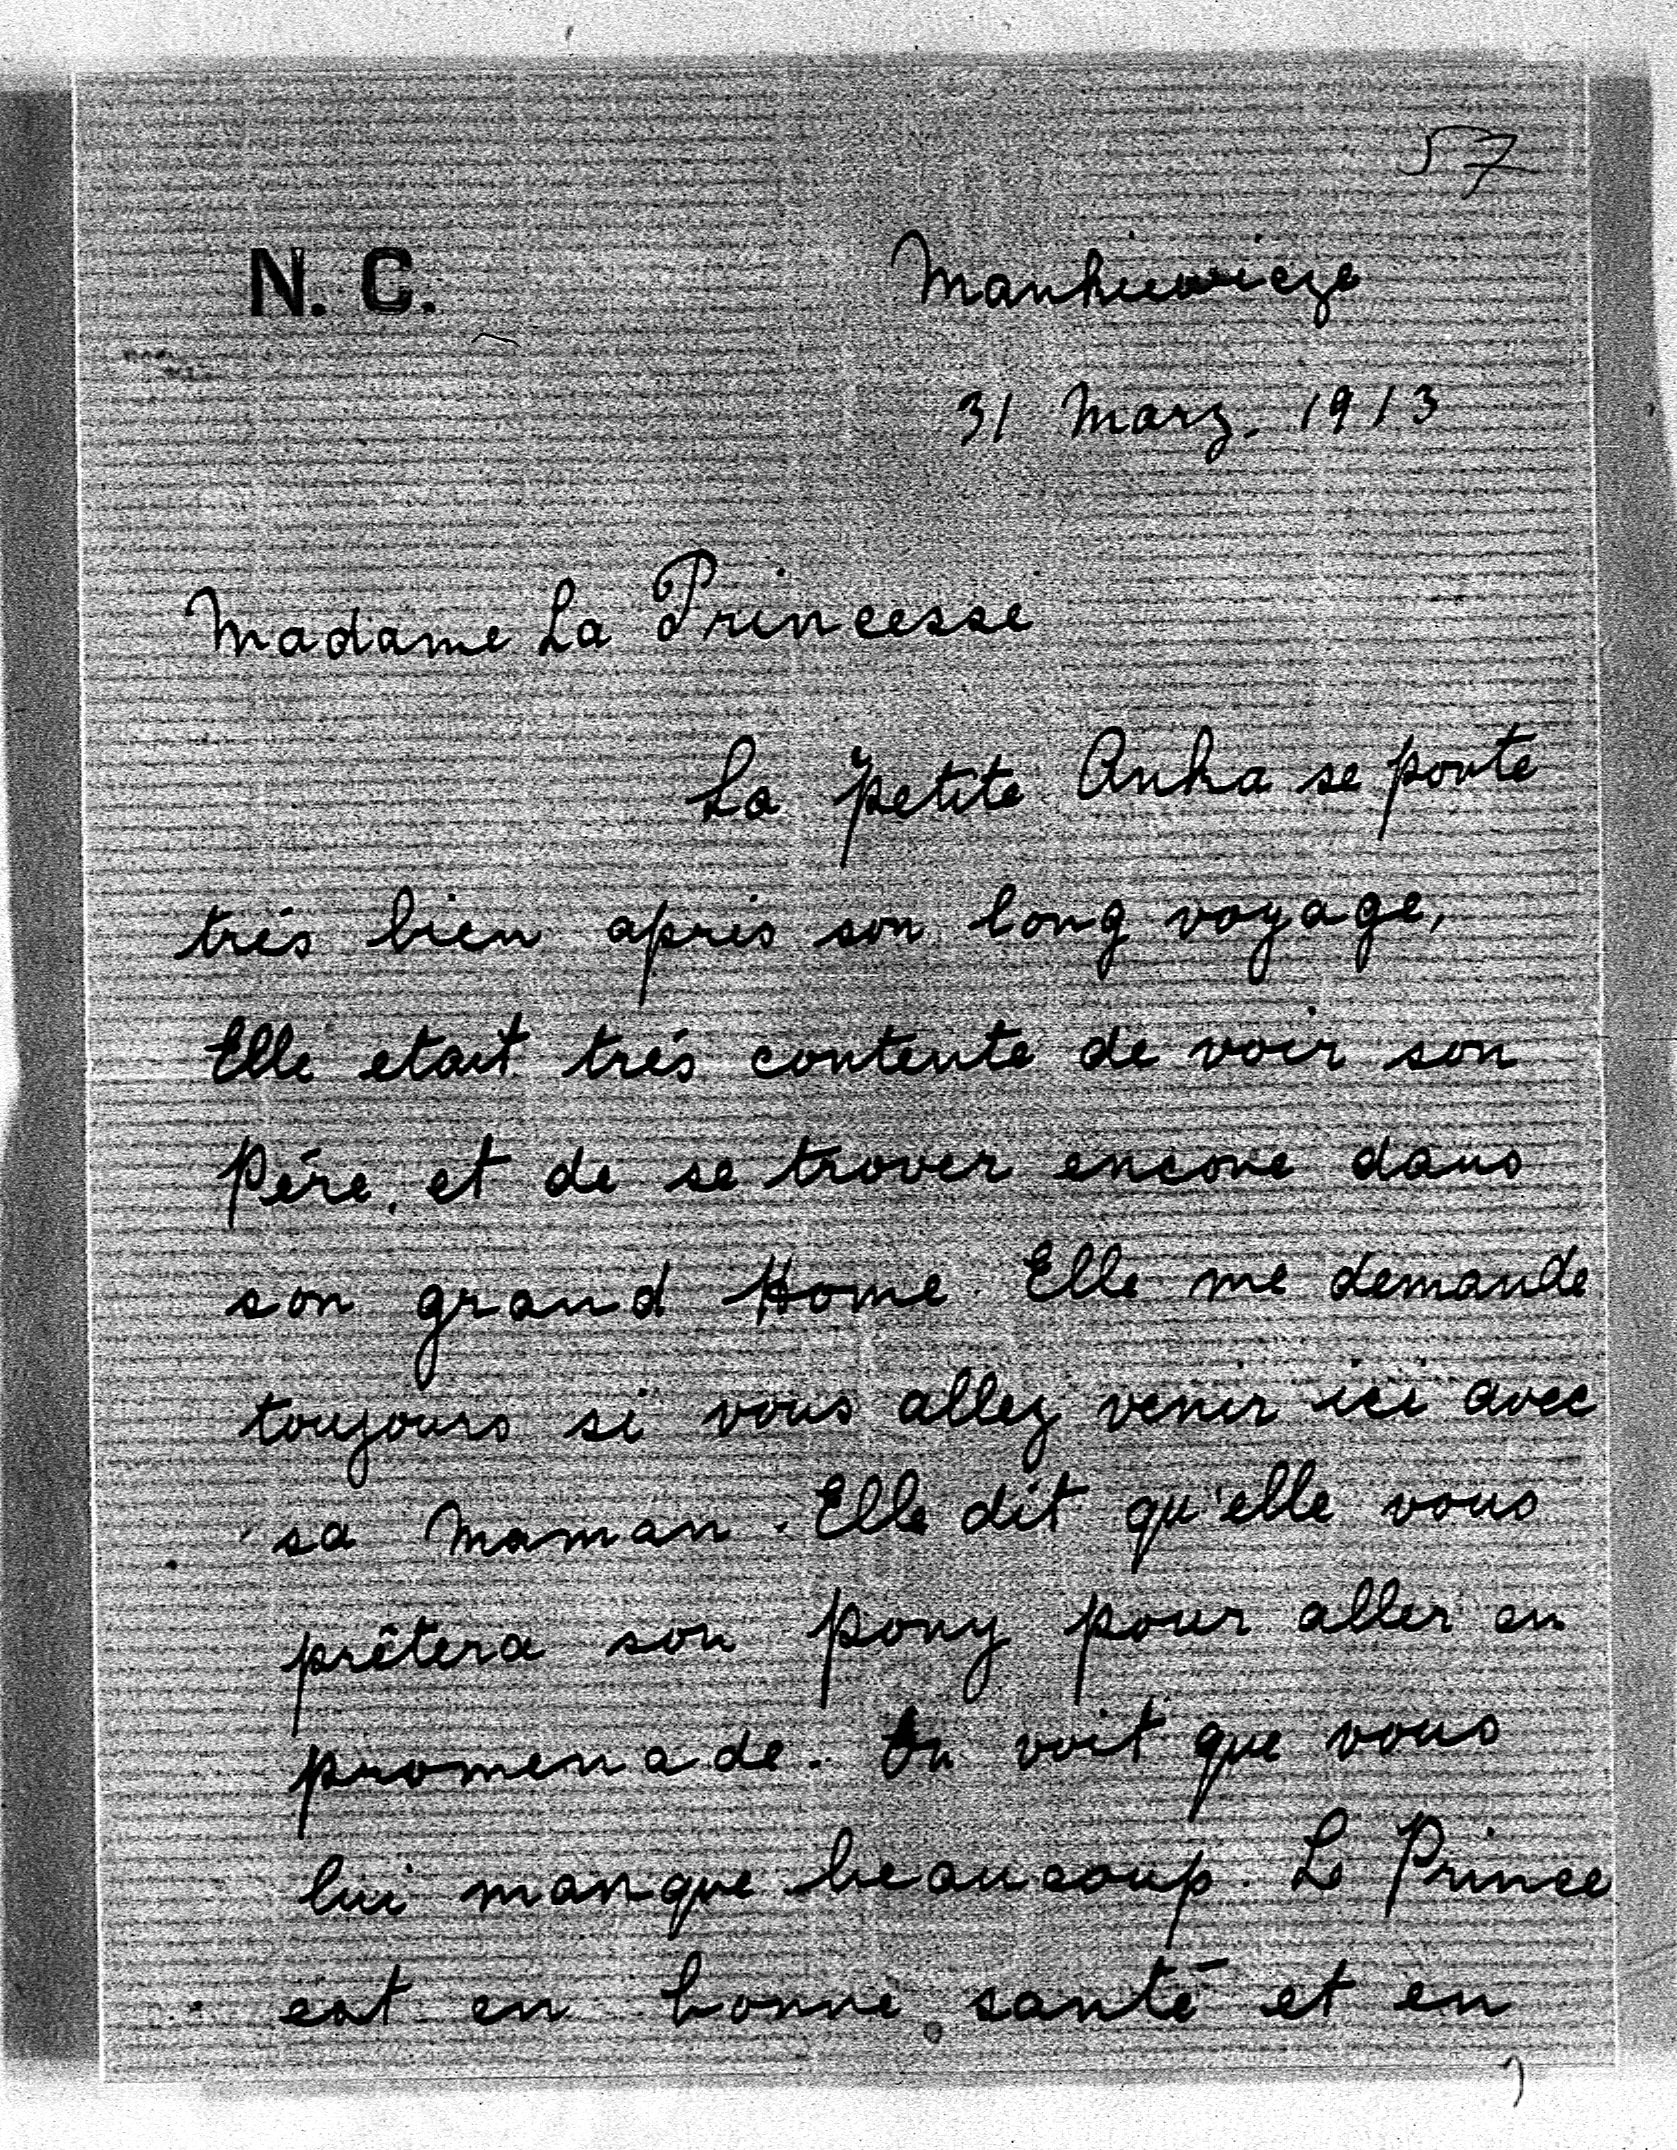 57
N. C.
Mankiewicze
31 Marz. 1913
Madame La Princesse
La petite Anka se porte
trés bien aprés son long voyage,
Elle etait trés contente de voir son
Pére, et de se trover encore dans
son grand Home. Elle me demande
toujours si vous allez venir ici avec
sa Maman. Elle dit qu'elle vous
prêtera son pony pour aller en
promenade. On voit que vous
lui manque beaucoup. Le Prince
est en bonne santé et en